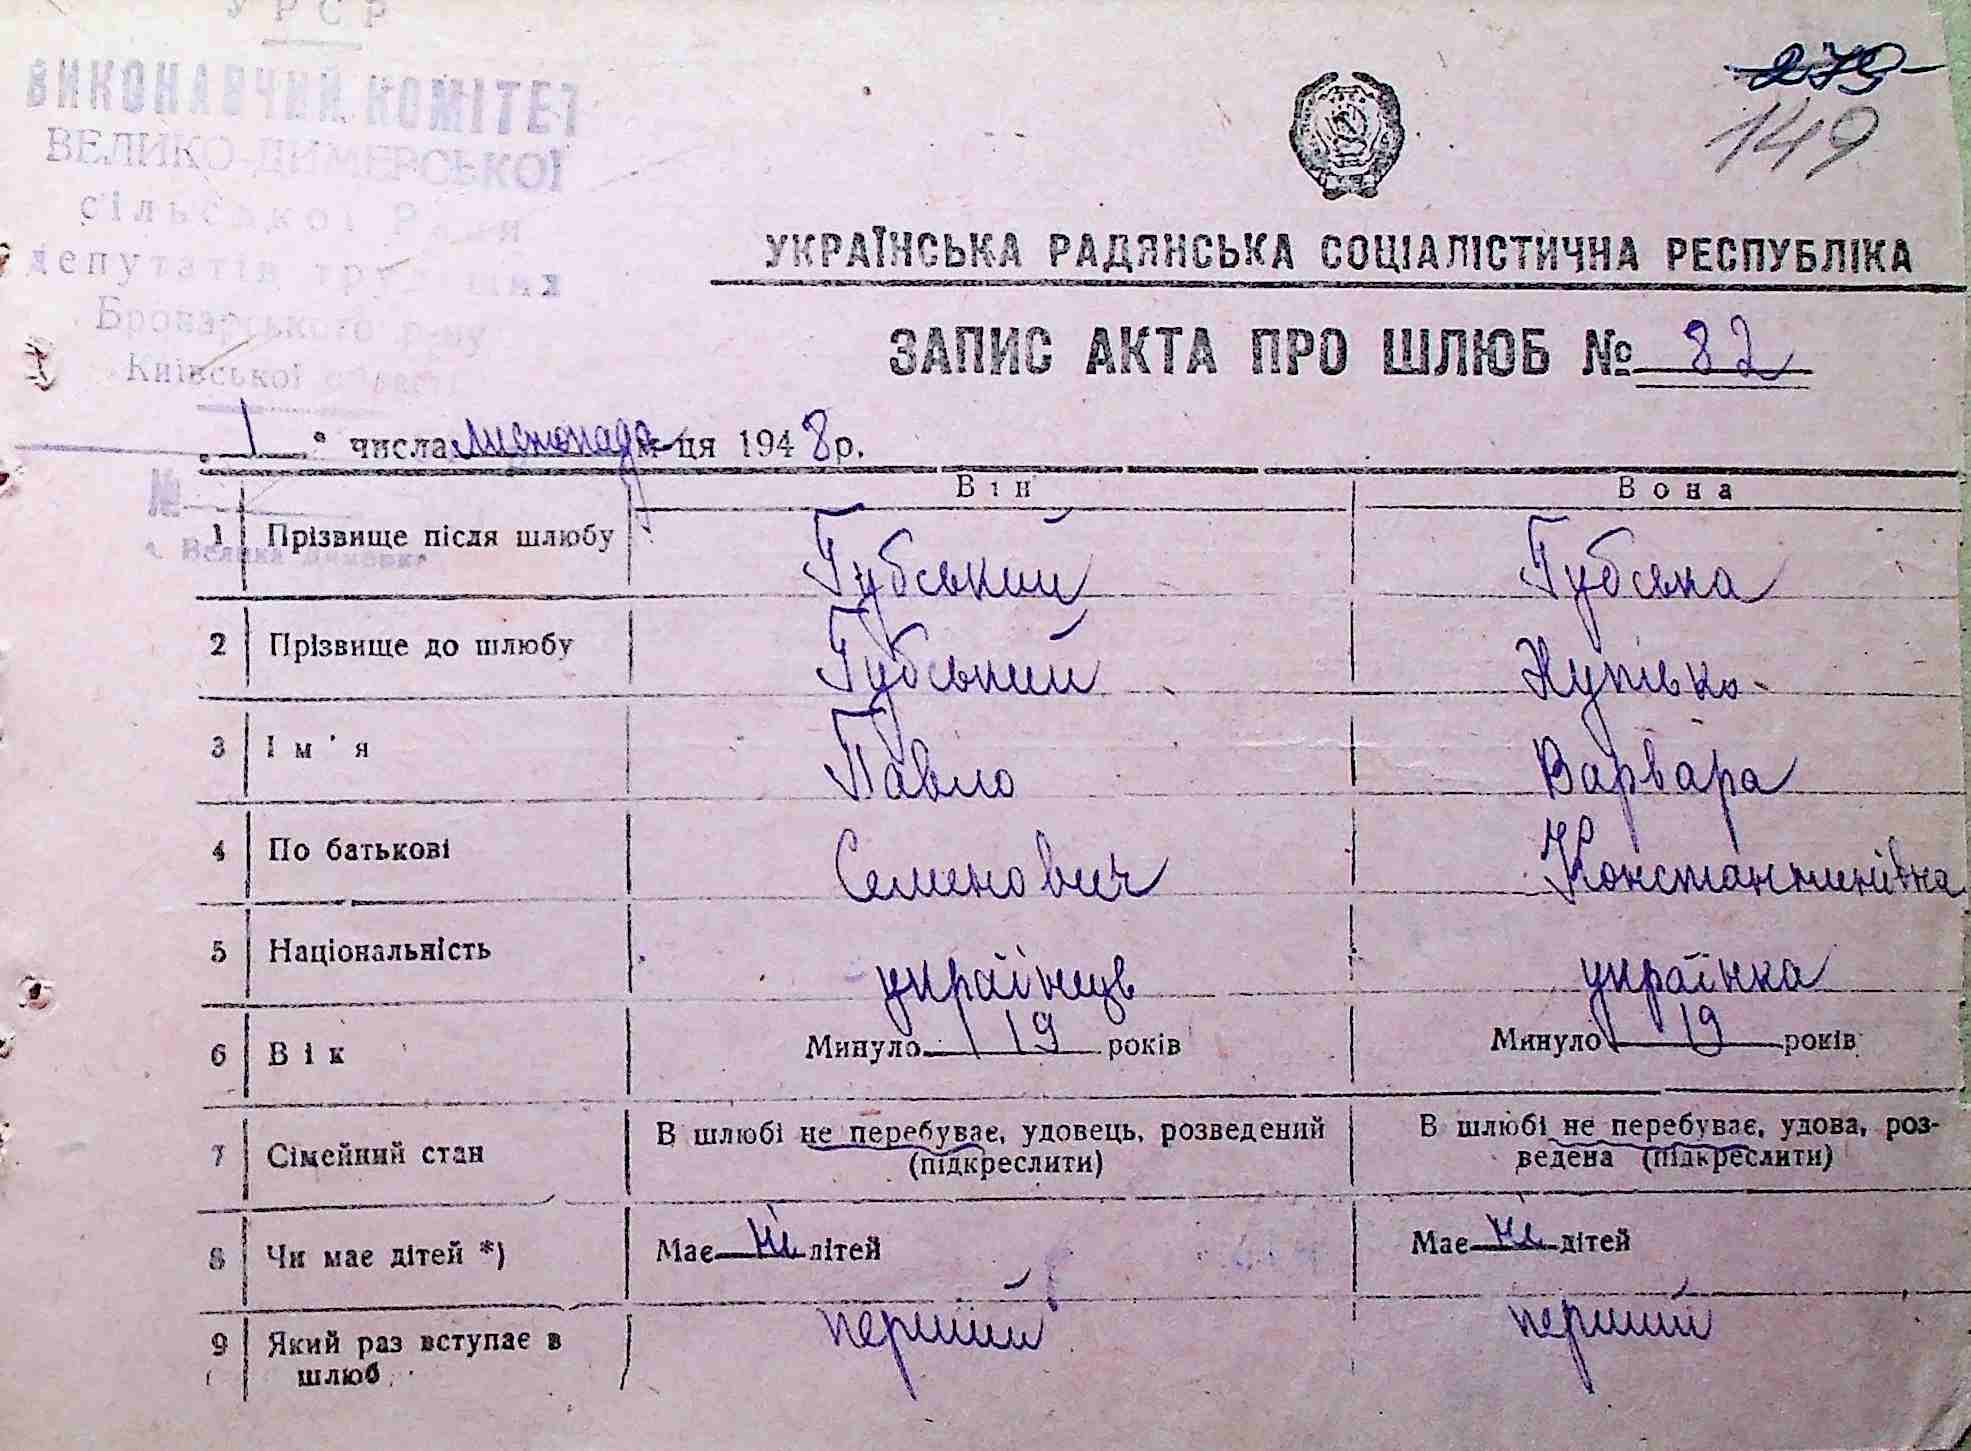 УРСР
ВИКОНАВЧИЙ КОМІТЕТ
ВЕЛИКО-ДИМЕРСЬКОЇ
сільської Ради
депутатів трудящих
Броварського р-ну
Київської області
279
149
УКРАЇНСЬКА РАДЯНСЬКА СОЦІАЛІСТИЧНА РЕСПУБЛІКА
ЗАПИС АКТА ПРО ШЛЮБ № 82
„1" числа листопада м-ця 1948 р.
№
Він Вона
1 Прізвище після шлюбу Губський Губська
с. Велика Димерка
2 Прізвище до шлюбу Губський
3 Ім'я Павло Варвара
4 По батькові Семенович Константинівна
5 Національність українець українка
6 Вік Минуло 19 років Минуло 19 років
7 Сімейний стан В шлюбі не перебуває, удовець, розведений (підкреслити) В шлюбі не перебуває, удова, роз-ведена (підкреслити)
8 Чи має дітей *) Має ні дітей Має ні дітей
9 Який раз вступає в шлюб перший перший